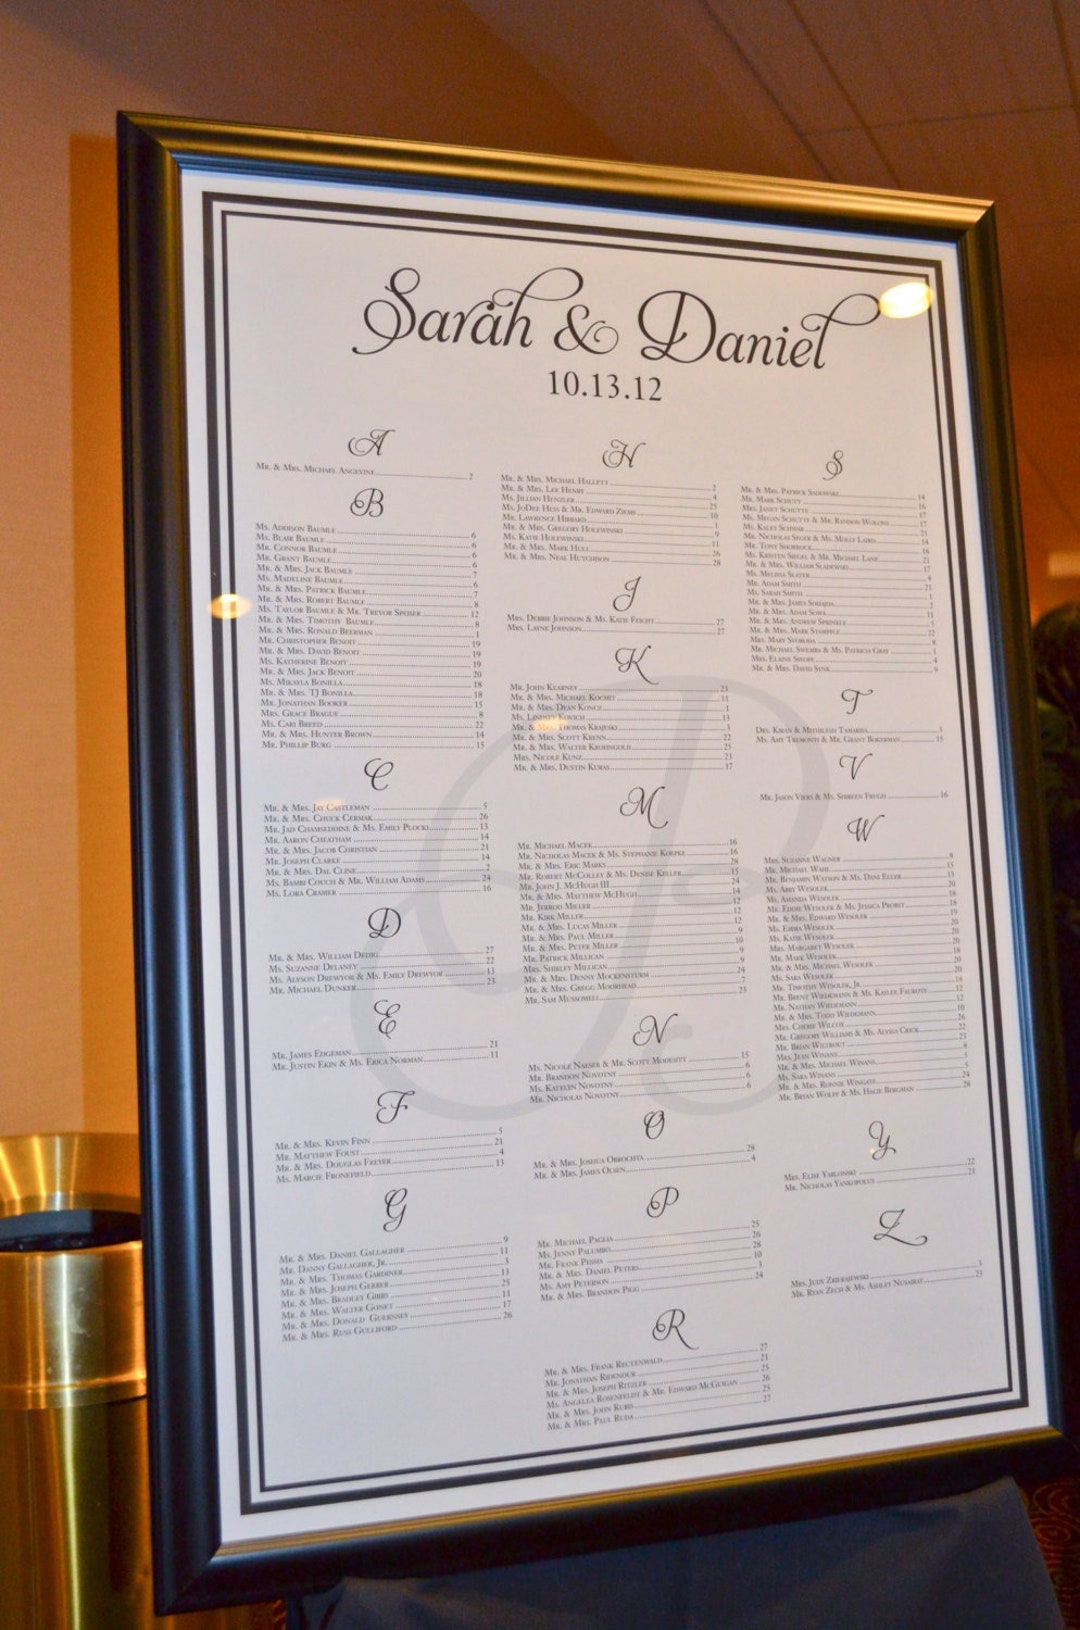 Sarah & Daniel
10.13.12
A
Mr. & Mrs. Michael Angevine 2
B
Ms. Addison Baumle 6
Ms. Blair Baumle 6
Mr. Connor Baumle 6
Mr. Grant Baumle 6
Mr. & Mrs. Jack Baumle 7
Ms. Madeline Baumle 6
Mr. & Mrs. Patrick Baumle 7
Mr. & Mrs. Robert Baumle 8
Ms. Taylor Baumle & Mr. Trevor Speiser 12
Mr. & Mrs. Timothy Baumle 8
Mr. & Mrs. Ronald Beerman 1
Mr. Christopher Benoit 19
Mr. & Mrs. David Benoit 19
Ms. Katherine Benoit 19
Mr. & Mrs. Jack Benoit 20
Ms. Mikayla Bonilla 18
Mr. & Mrs. TJ Bonilla 18
Mr. Jonathan Booker 15
Mrs. Grace Brague 8
Ms. Cari Breed 22
Mr. & Mrs. Hunter Brown 14
Mr. Phillip Burg 15
C
Mr. & Mrs. Jay Castleman 5
Mr. & Mrs. Chuck Cermak 26
Mr. Jad Chamseddine & Ms. Emily Plocki 13
Mr. Aaron Cheatham 14
Mr. & Mrs. Jacob Christian 21
Mr. Joseph Clarke 14
Mr. & Mrs. Dal Cline 2
Ms. Bambi Couch & Mr. William Adams 24
Ms. Lora Cramer 16
D
Mr. & Mrs. William Dedig 27
Ms. Suzanne Delaney 22
Ms. Alyson Drewyor & Ms. Emily Drewyor 13
Mr. Michael Dunker 23
E
Mr. James Edgeman 21
Mr. Justin Ekin & Ms. Erica Norman 11
F
Mr. & Mrs. Kevin Finn 5
Mr. Matthew Foust 21
Mr. & Mrs. Douglas Freyer 4
Ms. Marcie Fronefield 13
G
Mr. & Mrs. Daniel Gallagher 9
Mr. Danny Gallagher, Jr. 11
Mr. & Mrs. Thomas Gardiner 3
Mr. & Mrs. Joseph Gerber 13
Mr. & Mrs. Bradley Gibbs 25
Mr. & Mrs. Walter Goney 11
Mr. & Mrs. Donald Guernsey 17
Mr. & Mrs. Russ Gulliford 26
H
Mr. & Mrs. Michael Hallett 2
Mr. & Mrs. Lee Henry 4
Ms. Jillian Henzler 25
Ms. JoDee Hess & Mr. Edward Ziems 10
Mr. Lawrence Hibbard 1
Mr. & Mrs. Gregory Holewinski 9
Ms. Katie Holewinski 11
Mr. & Mrs. Mark Hull 26
Mr. & Mrs. Neal Hutchison 28
J
Mrs. Debbie Johnson & Ms. Katie Feicht 27
Mrs. Layne Johnson 27
K
Mr. John Kearney 23
Mr. & Mrs. Michael Kochet 11
Mr. & Mrs. Dean Koncz 1
Ms. Lindsey Kovich 13
Mr. & Mrs. Thomas Krajeski 3
Mr. & Mrs. Scott Krenn 22
Mr. & Mrs. Walter Krohngold 25
Mrs. Nicole Kunz 23
Mr. & Mrs. Dustin Kuwas 17
M
Mr. Michael Macek 16
Mr. Nicholas Macek & Ms. Stephanie Koepke 16
Mr. & Mrs. Eric Marks 28
Mr. Robert McColley & Ms. Denise Keller 15
Mr. John J. McHugh III 24
Mr. & Mrs. Matthew McHugh 14
Mr. Jerrod Miller 12
Mr. Kirk Miller 12
Mr. & Mrs. Lucas Miller 12
Mr. & Mrs. Paul Miller 9
Mr. & Mrs. Peter Miller 10
Mr. Patrick Millican 9
Mrs. Shirley Millican 9
Mr. & Mrs. Denny Mockensturm 24
Mr. & Mrs. Gregg Moorhead 7
Mr. Sam Mussomeli 23
N
Ms. Nicole Naeser & Mr. Scott Modesitt 15
Mr. Brandon Novotny 6
Ms. Katelyn Novotny 6
Mr. Nicholas Novotny 6
O
Mr. & Mrs. Joshua Obrochta 28
Mr. & Mrs. James Olsen 4
P
Mr. Michael Paglia 25
Ms. Jenny Palumbo 26
Mr. Frank Pessia 28
Mr. & Mrs. Daniel Peters 10
Ms. Amy Peterson 3
Mr. & Mrs. Brandon Pigg 24
R
Mr. & Mrs. Frank Rectenwald 27
Mr. Jonathan Ridenour 21
Mr. & Mrs. Joseph Ritzler 25
Ms. Angelea Rosenfeldt & Mr. Edward McGuigan 26
Mr. & Mrs. John Rubis 25
Mr. & Mrs. Paul Ruda 27
S
Mr. & Mrs. Patrick Sadowski 14
Mr. Mark Schutt 16
Mrs. Janet Schutte 17
Ms. Megan Schutte & Mr. 17
Ms. Kaley Schwab 21
Mr. Nicholas Seger & Ms. Molly Laird 14
Mr. Tony Shorrock 16
Ms. Kristen Siegel & Mr. Michael Lane 21
Mr. & Mrs. William Sladewski 17
Ms. Melissa Slater 4
Mr. Adam Smith 21
Ms. Sarah Smith 1
Mr. & Mrs. James Sohajda 2
Mr. & Mrs. Adam Sowa 11
Mr. & Mrs. Andrew Sprinkle 5
Mr. & Mrs. Mark Stampple 22
Mrs. Mary Svoboda 8
Mr. Michael Swemba & Ms. Patricia Gray 1
Mrs. Elaine Swope 4
Mr. & Mrs. David Synk 9
T
Drs. Kiran & Mithilesh Tamarisa 5
Ms. Amy Tremonti & Mr. Grant Bokerman 15
V
Mr. Jason Viers & Ms. Shireen Frugh 16
W
Mrs. Suzanne Wagner 8
Mr. Michael Wahl 15
Mr. Benjamin Watson & Ms. Dani Eller 13
Ms. Abby Wesoler 20
Ms. Amanda Wesoler 18
Mr. Eddie Wesoler & Ms. Jessica Probst 18
Mr. & Mrs. Edward Wesoler 19
Ms. Emma Wesoler 20
Ms. Katie Wesoler 20
Mrs. Margaret Wesoler 20
Mr. Mark Wesoler 18
Mr. & Mrs. Michael Wesoler 20
Ms. Sara Wesoler 20
Mr. Timothy Wesoler, Jr. 18
Mr. Brent Wiedemann & Ms. Kaylee Faurote 12
Mr. Nathan Wiedemann 12
Mr. & Mrs. Todd Wiedemann 10
Mrs. Cherie Wilcox 26
Mr. Gregory Williams & Ms. Alysia Crick 22
Mr. Brian Wiltrout 23
Mrs. Jean Winans 8
Mr. & Mrs. Michael Winans 5
Ms. Sara Winans 5
Mr. & Mrs. Ronnie Wingate 24
Mr. Brian Wolff & Ms. Halie Bergman 28
Y
Mrs. Elise Yablonski 22
Mr. Nicholas Yankopolus 21
Z
Mrs. Judy Zbierajewski 3
Mr. Ryan Zech & Ms. Ashley Nusairat 23